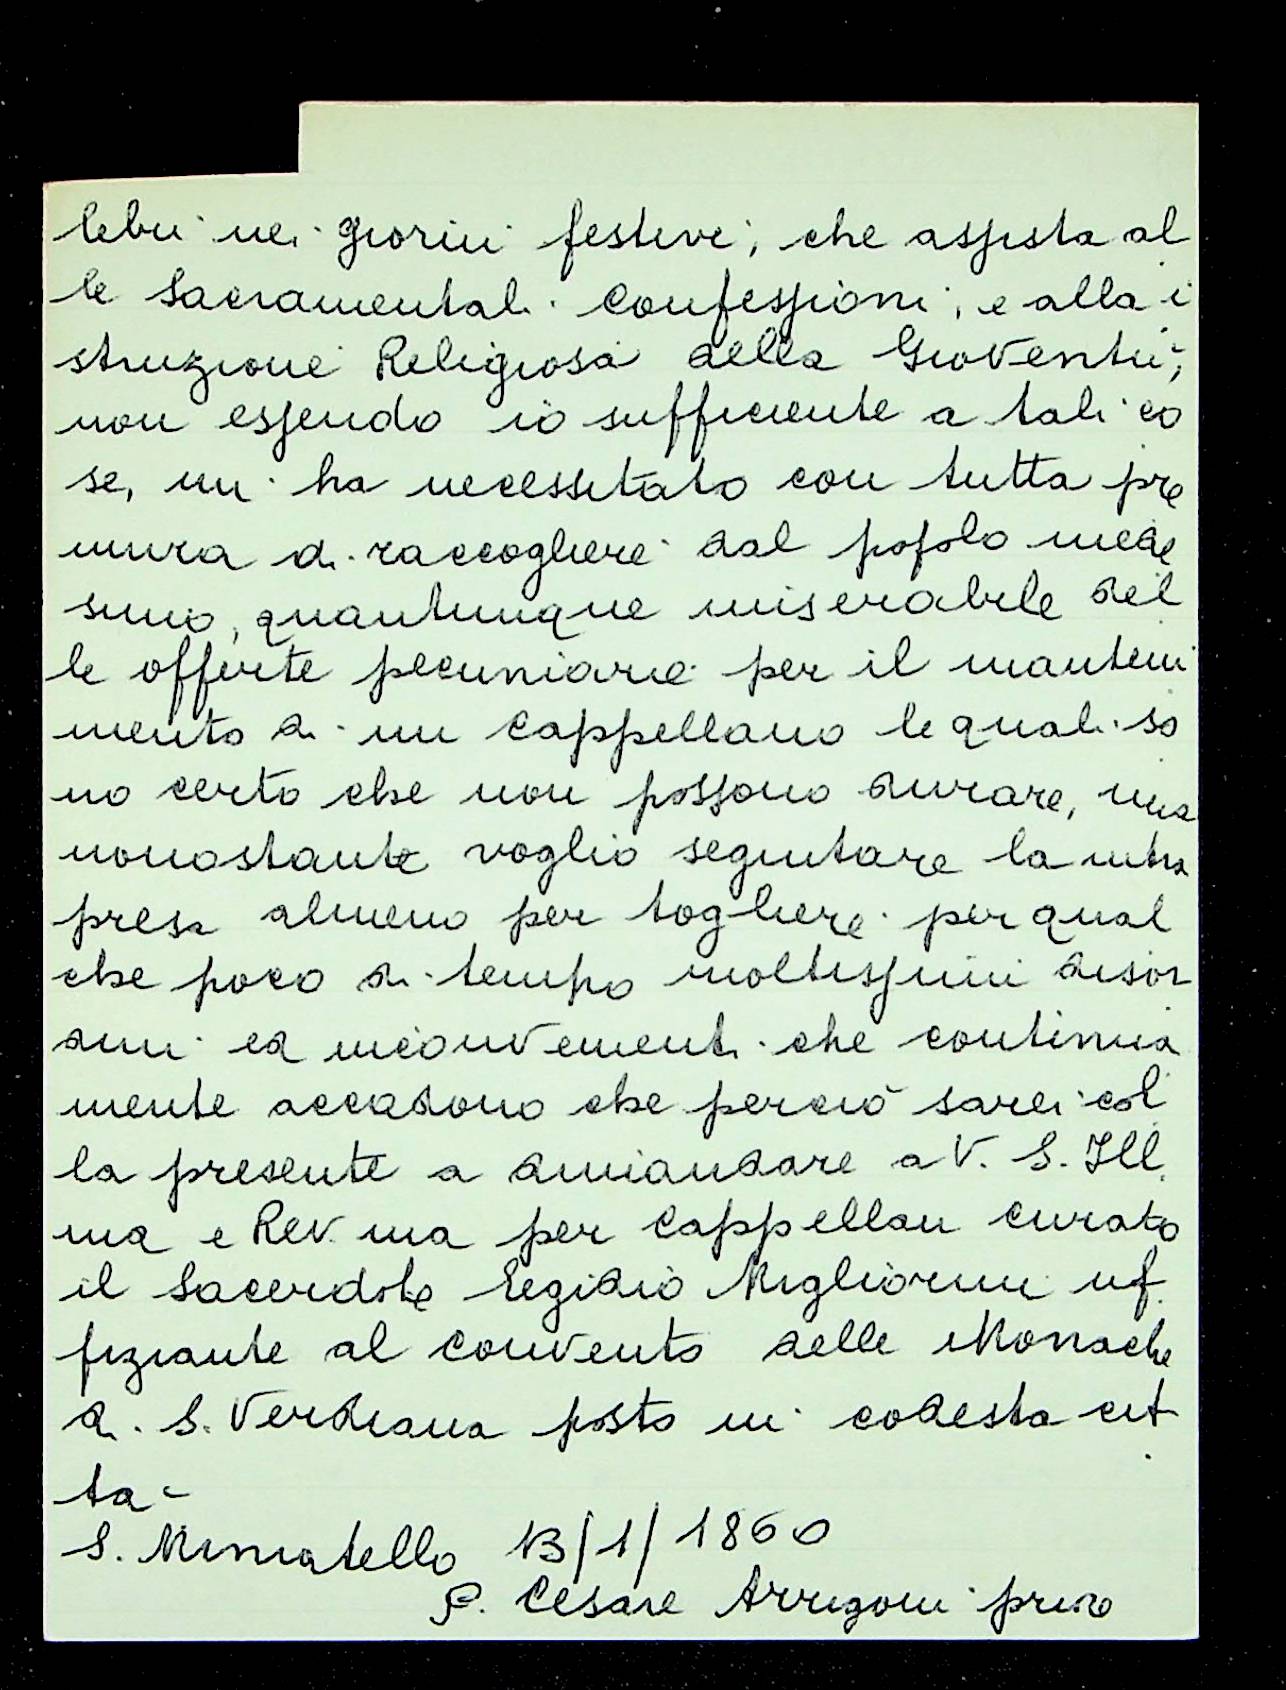 lebri nei giorni festivi, che assista al
le Sacramentali Confessioni, e alla i
struzione Religiosa della Gioventù,
non essendo io sufficiente a tali co
se, mi ha necessitato con tutta pre
mura di raccogliere dal popolo mede
simo, quantunque miserabile del
le offerte pecuniarie per il manteni
mento di un Cappellano le quali so
no certo che non possono durare, ma
nonostante voglio seguitare la intra
presa almeno per togliere per qual
che poco di tempo moltissimi disor
dini ed inconvenienti che continua
mente accadono che perciò sarei col
la presente a dimandare a V. S. Ill.
ma e Rev.ma per Cappellan curato
il Sacerdote Egidio Migliorini uf
fiziante al convento delle Monache
di S. Verdiana posto in codesta cit
tà-
S. Miniatello 13/1/1860
P. Cesare Arrigoni priore